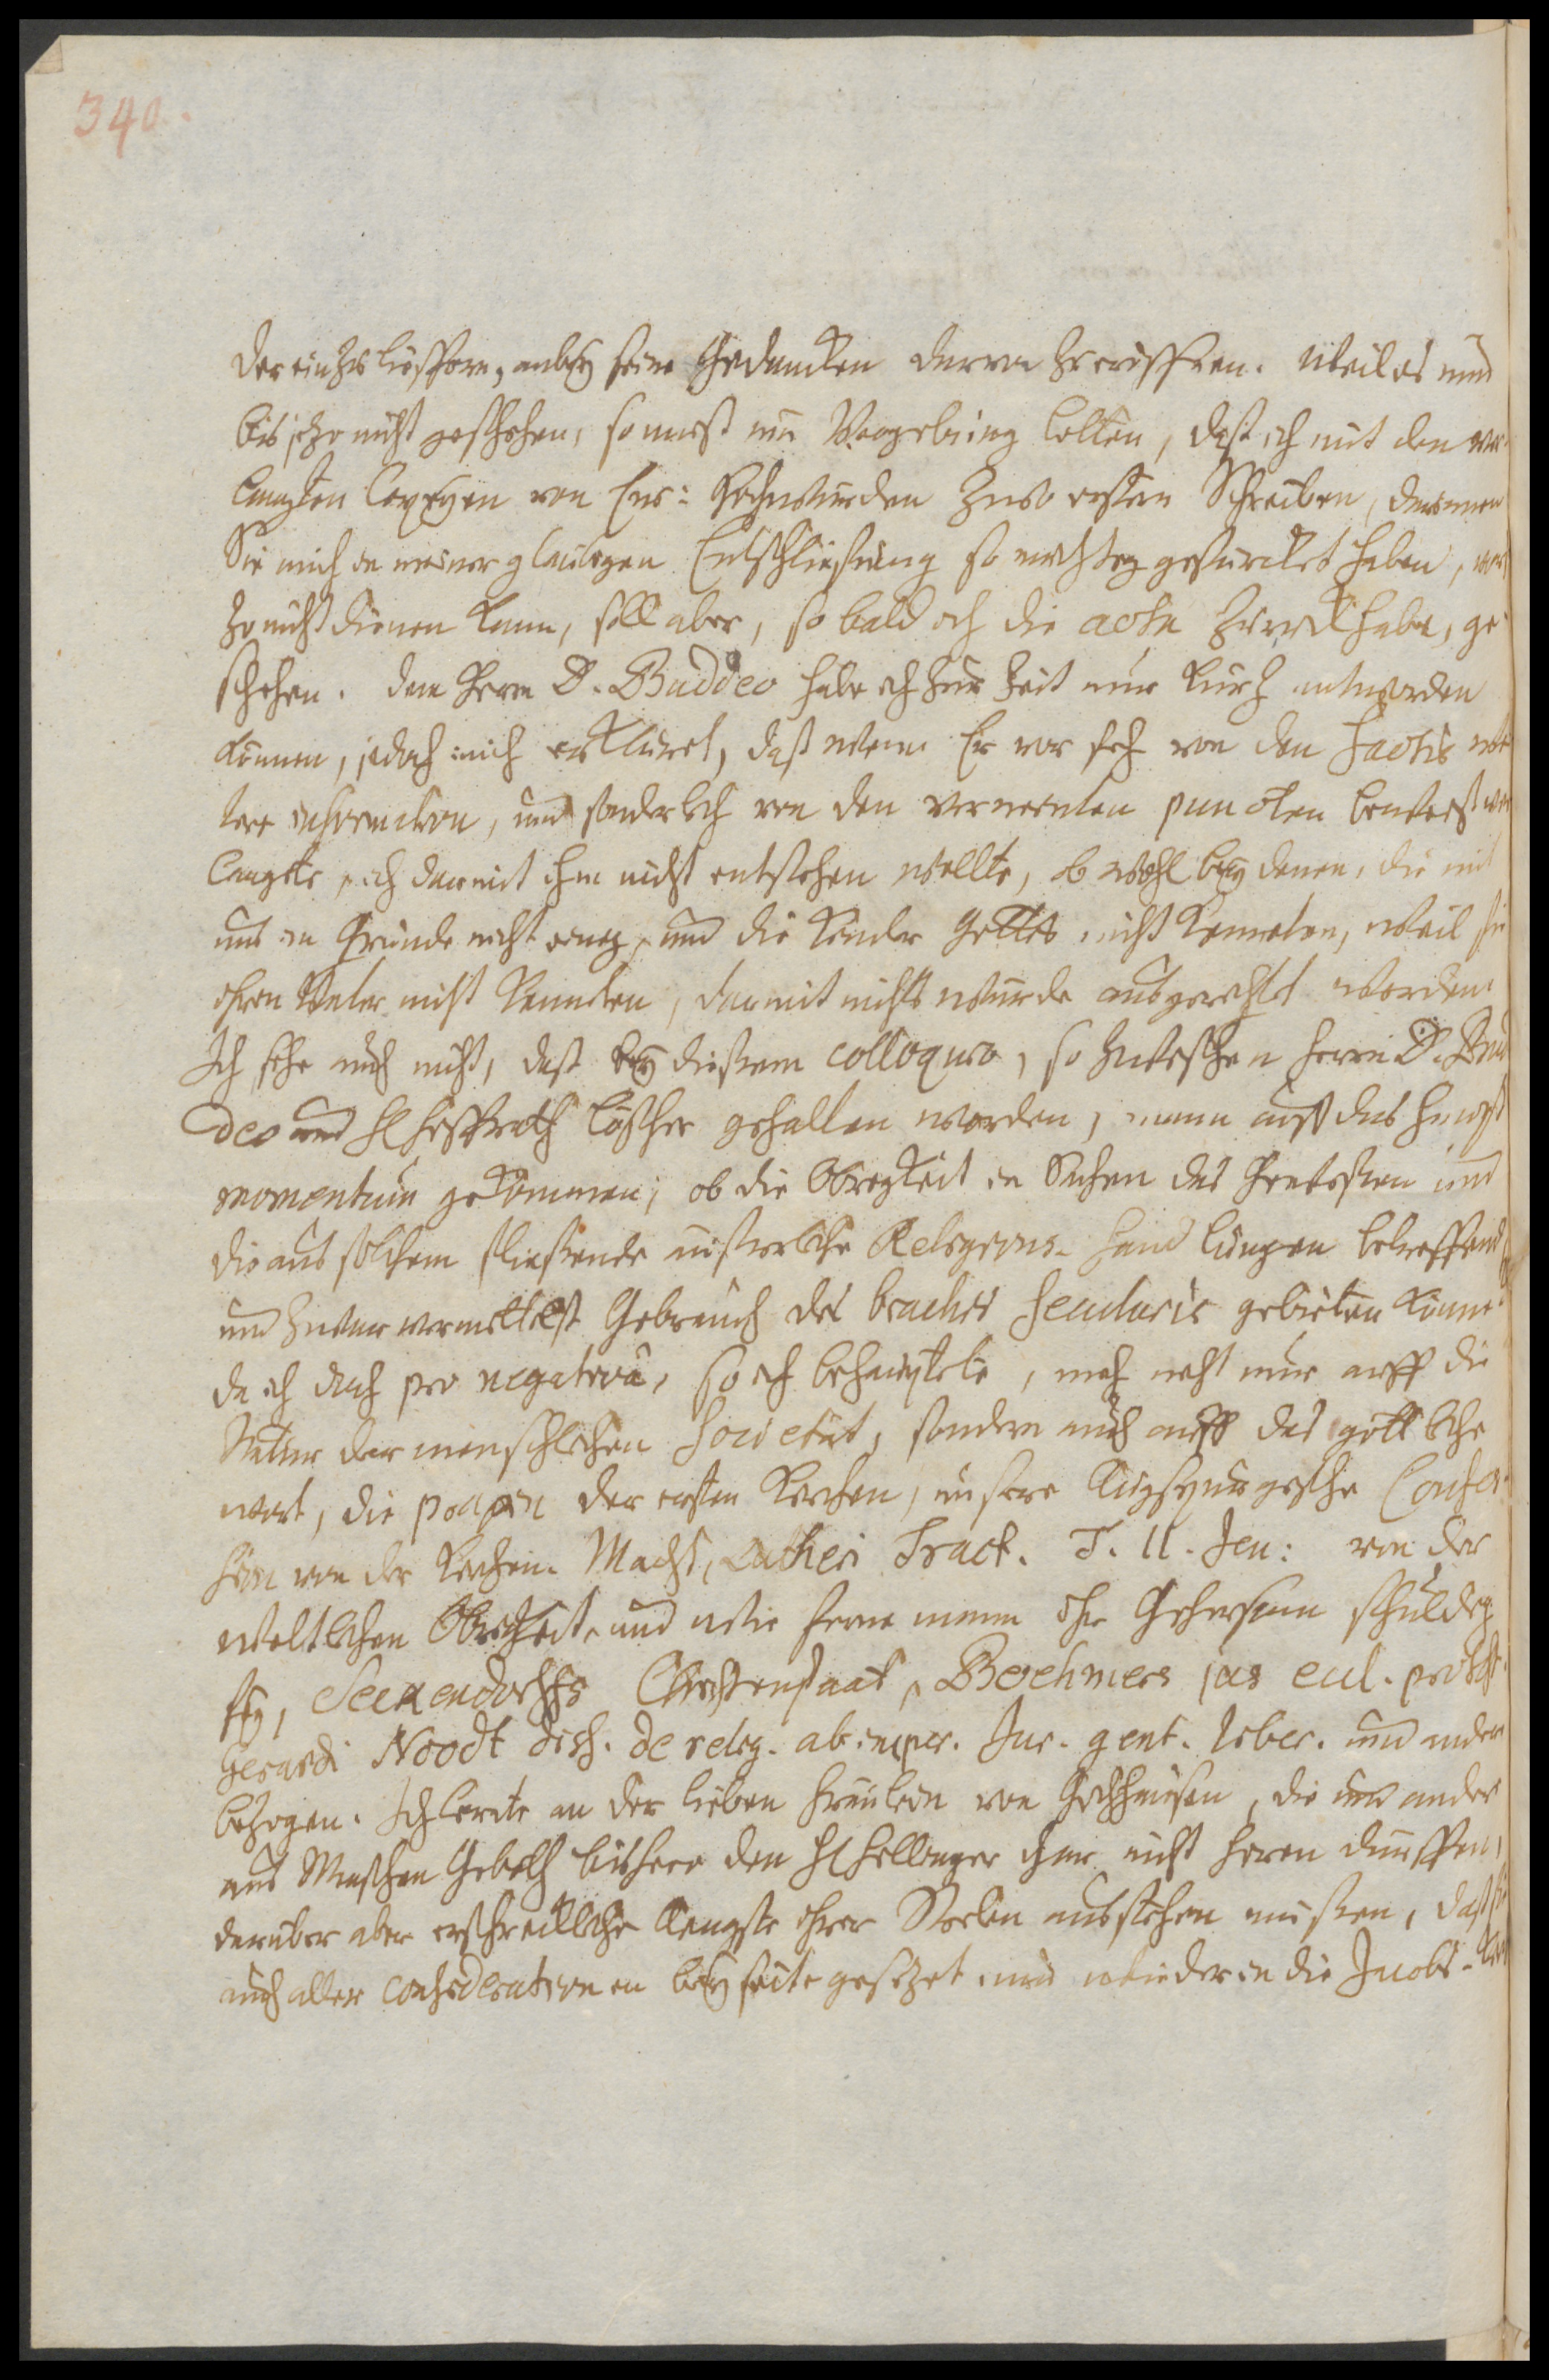 340.
der einzulieffern, anbey seine Gedancken davon zu eröffnen. Weil es nun
bis jetzo nicht geschehen, so muß um Vergebung bitten, daß ich mit den ver-
langten Copeyen von Ew: Hochwürden zwo ersten Schreiben, darinnen
Sie mich in meiner gläubigen Entschließung so mächtig gestärcket haben,
zo nicht dienen kann, soll aber, so bald ich die acta zurück habe, ge-
schehen. dem Herrn D. Buddeo habe ich zur Zeit nur kurtz antworden
können, jedoch mich erkläret, daß wenn Er vor sich von den Factis wei-
tere information, und sonderlich von den vermeinten puncten bewust ver-
langte, ich damit ihm nicht entstehen wollte, ob wohl bey denen, die mit
uns im Grunde nicht einig, und die Kinder Gottes nicht kenneten, weil sie
ihren Vater nicht kenneten, damit nichts würde ausgerichtet werden.
Ich sehe auch nicht, daß bey dießem colloquio, so zwischen Herrn D. Bud
deo und H Hoffrath Löscher gehalten worden, mann auff das Haupt
momentum gekommen; ob die Obrigkeit in Sachen das Gewissen und
die aus solchem fließende äusserliche Religions-Handlungen betreffend
und zwar vermittelst Gebrauch des brachii secularis gebieten könne
da ich doch pro negativa, so ich behauptete, mich nicht nur auff die
Natur der menschlichen Societät, sondern auch auff das göttliche
wort, die praxin der ersten Kirchen, unsere Augspurgische Confes-
sion von der Kirchen Macht, Lutheri Tract. T. II. Jen: von der
weltlichen Obrigkeit, und wie ferne mann ihr Gehorsam schuldig
sey, Seckendorffs Christenstaat, Boehmers jus eccl. protest.
Gerardi Noodt diss. de relig. ab imper. Jur. gent. liber. und andere
bezogen. Ich lernte an der lieben Fräulein von Gochhausen, die nun anders
aus Menschen Geboth bishero den H Hellinger ihn nicht hören dürffen,
darüber aber erschreckliche Aengste ihrer Seelen ausstehen müßen, daß sie
auch aller considerationen bey seite gesetzet und wieder in die Jacobs-Kir